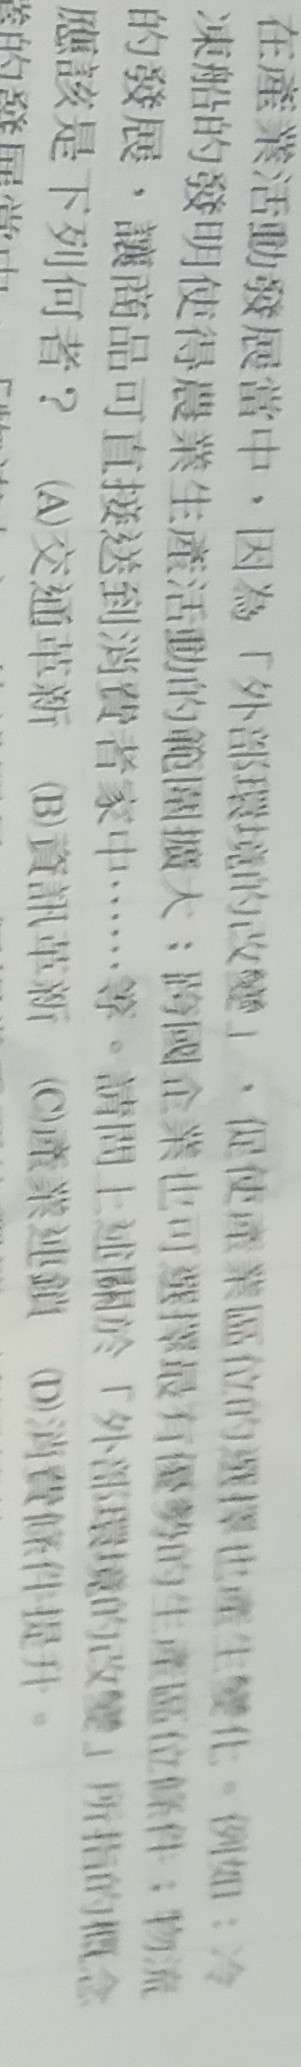 在產業活動發展當中，因為「外部環境的改變」，促使產業區位的選擇也產生變化。例如：冷
凍船的發明使得農業生產活動的範圍擴大；跨國企業也可選擇最有優勢的生產區位條件；物流
的發展，讓商品可直接送到消費者家中……等。請問上述關於「外部環境的改變」所指的概念
應該是下列何者？ (A)交通革新 (B)資訊革新 (C)產業連鎖 (D)消費條件提升。